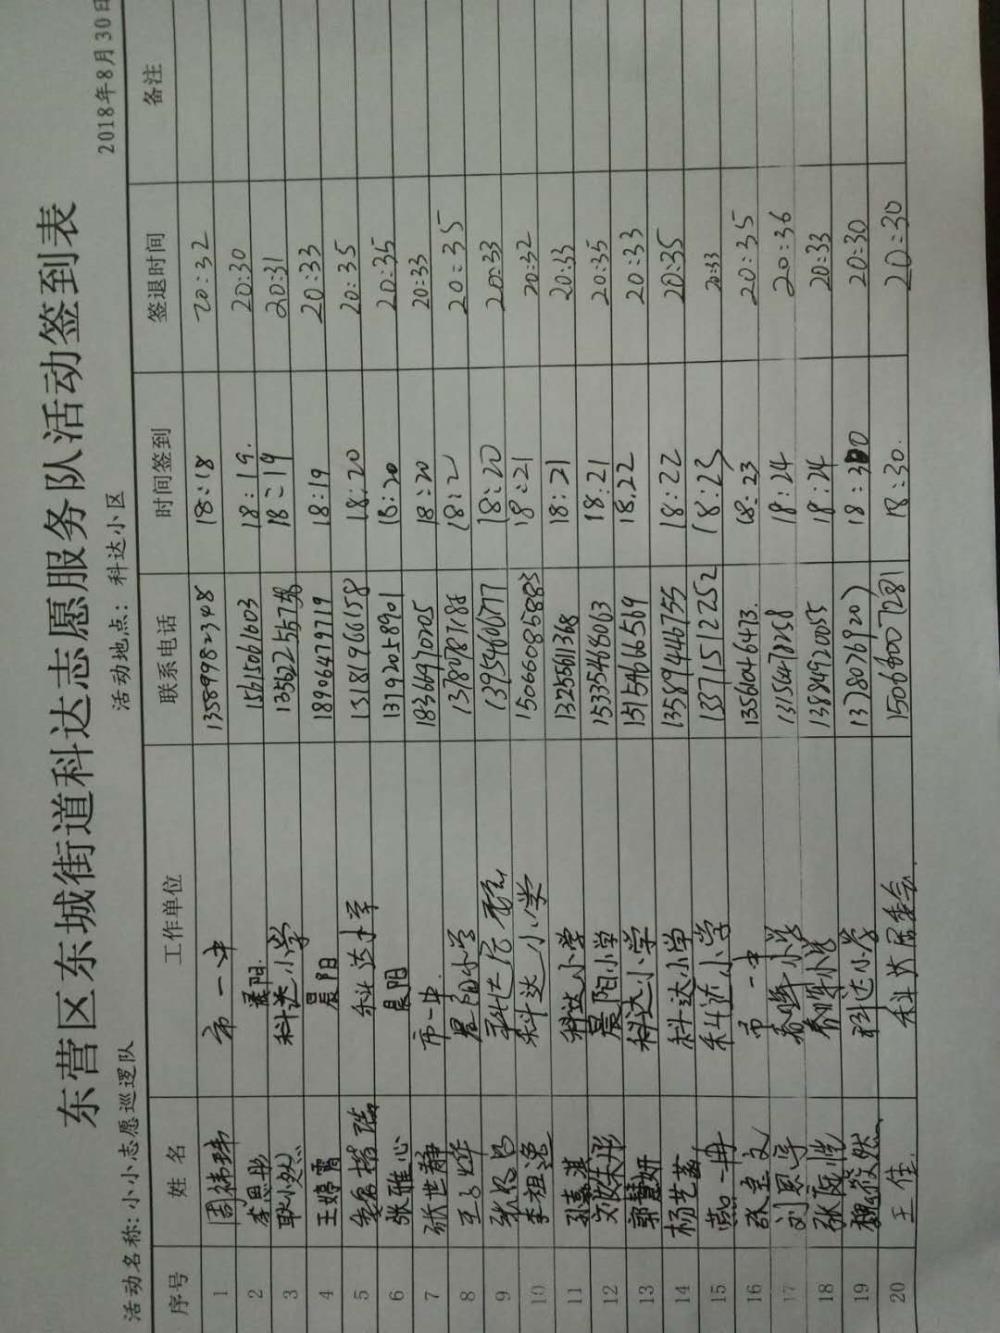 东营区东城街道科达志愿服务队活动签到表
活动名称: 小小志愿巡逻队 活动地点: 科达小区 2018年8月30日
序号 姓 名 工作单位 联系电话 时间签到 签退时间 备注
1 周祎玮 市一中 13589982348 18:18 20:32
2 李思彤 晨阳 18:19. 20:30
3 科达小学 18:19 20:31
4 王婷霄 晨阳 18906479719 18:19 20:33
5 科达小学 13181966158 18:20 20:35
6 张雅心 晨阳 13192058901 18:20 20:35
7 张世静 市一中 18366970205 18:20 20:33
8 晨阳小学 20:35
9 13954606677 18:20 20:33
10 李祖逸 科达小学 15066085883 18:21 20:32
11 科达小学 13255611368 18:21 20:33
12 晨阳小学 15335468063 18:21 20:35
13 郭慧妍 科达小学 15154666569 18.22 20:33
14 杨艺菡 科达小学 13589446755 18:22 20:35
15 燕一冉 科达小学 13371512252 18:23 20:33
16 市一中 13561046473 18:23 20:35
17 刘思宇 18:24 20:36
18 13884920055 18:24 20:33
19 科达小学 20:30
20 王佳 科达居委会 15066007281 18:30. 20:30